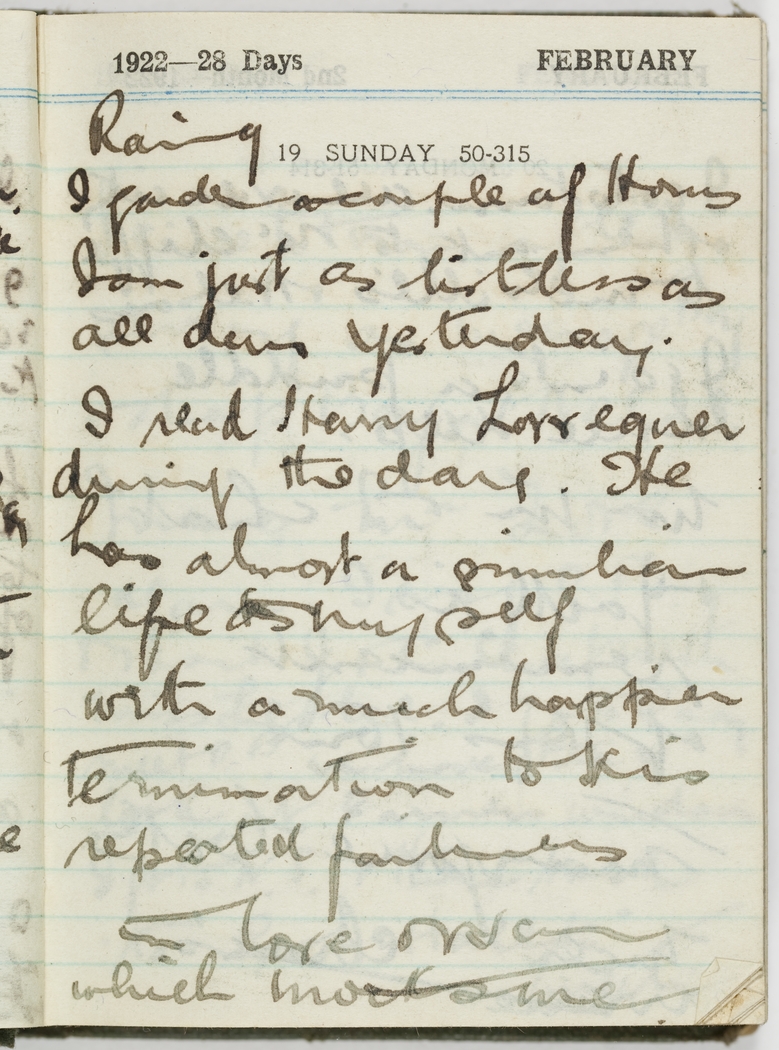 1922—28 Days FEBRUARY
Raing
19 SUNDAY 50-315
I garden a couple of Hours
I am just as listless as
all yesterday.
I read Harry Lorrequer
during the day. He
has almost a similiar
life as my self
with a much happier
termination to his
repeated failures
in love
which me